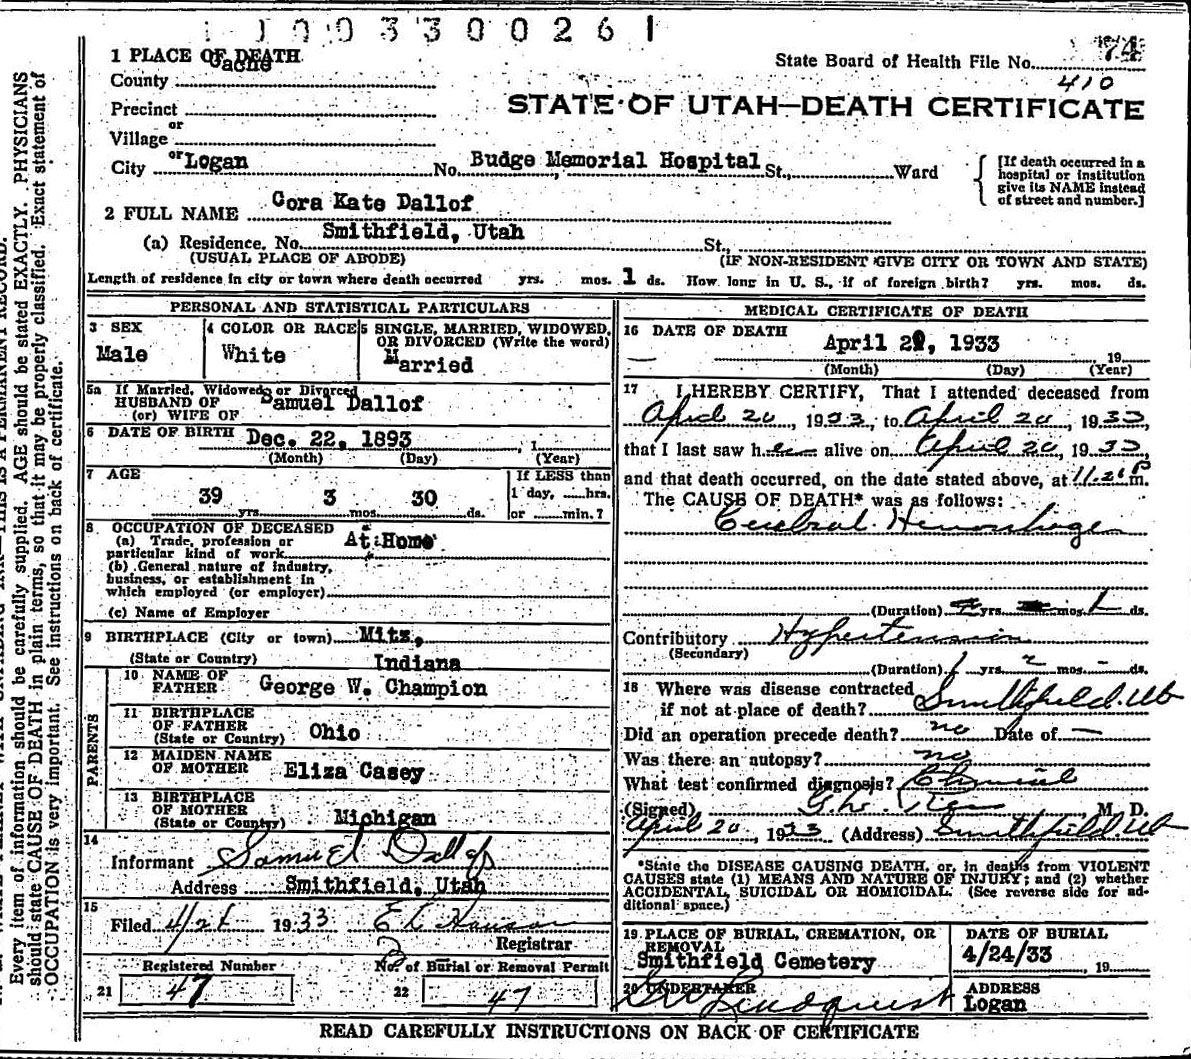 1 1 0 0 3 3 0 0 2 6 1
1 PLACE OF DEATH
Cache
County
State Board of Health File No. 74
410
Precinct
STATE OF UTAH—DEATH CERTIFICATE
or
Village
or
City Logan No. Budge Memorial Hospital St., Ward
[If death occurred in a
hospital or institution
give its NAME instead
of street and number.]
2 FULL NAME Cora Kate Dallof
(a) Residence. No. Smithfield, Utah St.,
(USUAL PLACE OF ABODE) (IF NON-RESIDENT GIVE CITY OR TOWN AND STATE)
Length of residence in city or town where death occurred yrs. mos. 1 ds. How long in U. S., if of foreign birth? yrs. mos. ds.
PERSONAL AND STATISTICAL PARTICULARS
3 SEX
Male
4 COLOR OR RACE
White
5 SINGLE, MARRIED, WIDOWED,
OR DIVORCED (Write the word)
Married
5a If Married, Widowed, or Divorced
HUSBAND OF
(or) WIFE OF
Samuel Dallof
6 DATE OF BIRTH Dec. 22, 1893, 1
(Month) (Day) (Year)
7 AGE
If LESS than
39 3 30 1 day, hrs.
yrs. mos. ds. or min.?
8 OCCUPATION OF DECEASED
(a) Trade, profession or
particular kind of work
At Home
(b) General nature of industry,
business, or establishment in
which employed (or employer)
(c) Name of Employer
9 BIRTHPLACE (City or town) Mitz,
(State or Country) Indiana
PARENTS
10 NAME OF
FATHER George W. Champion
11 BIRTHPLACE
OF FATHER
(State or Country) Ohio
12 MAIDEN NAME
OF MOTHER Eliza Casey
13 BIRTHPLACE
OF MOTHER
(State or Country) Michigan
14
Informant Samuel Dallof
Address Smithfield, Utah
15
Filed 4/21 1933
Registrar
Registered Number
21 47
No. of Burial or Removal Permit
22 47
MEDICAL CERTIFICATE OF DEATH
16 DATE OF DEATH
April 20, 1933 19
(Month) (Day) (Year)
17 I HEREBY CERTIFY, That I attended deceased from
April 20, 1933, to April 20, 1933,
that I last saw her alive on April 20, 1933,
and that death occurred, on the date stated above, at P m.
The CAUSE OF DEATH* was as follows:
Cerebral Hemorrhage
(Duration) yrs. mos. 1 ds.
Contributory Hypertension
(Secondary)
(Duration) 1 yrs. 2 mos. - ds.
18 Where was disease contracted
if not at place of death? Smithfield. Ut
Did an operation precede death? no Date of —
Was there an autopsy? no
What test confirmed diagnosis? Clinical
(Signed) M. D.
April 20, 1933 (Address) Smithfield Ut
*State the DISEASE CAUSING DEATH, or, in deaths from VIOLENT
CAUSES state (1) MEANS AND NATURE OF INJURY; and (2) whether
ACCIDENTAL, SUICIDAL OR HOMICIDAL. (See reverse side for ad-
ditional space.)
19 PLACE OF BURIAL, CREMATION, OR
REMOVAL
Smithfield Cemetery
DATE OF BURIAL
4/24/33 19
20 UNDERTAKER
Lindquist
ADDRESS
Logan
READ CAREFULLY INSTRUCTIONS ON BACK OF CERTIFICATE
Every item of information should be carefully supplied. AGE should be stated EXACTLY. PHYSICIANS
should state CAUSE OF DEATH in plain terms, so that it may be properly classified. Exact statement of
OCCUPATION is very important. See instructions on back of certificate.